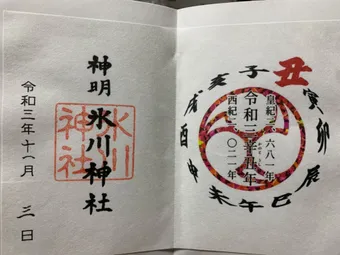 子丑寅卯辰巳午未申酉戌亥
皇紀二、六八一年
令和三辛丑年
西紀二、〇二一年
神明 氷川神社
氷川神社
令和三年十一月 三日